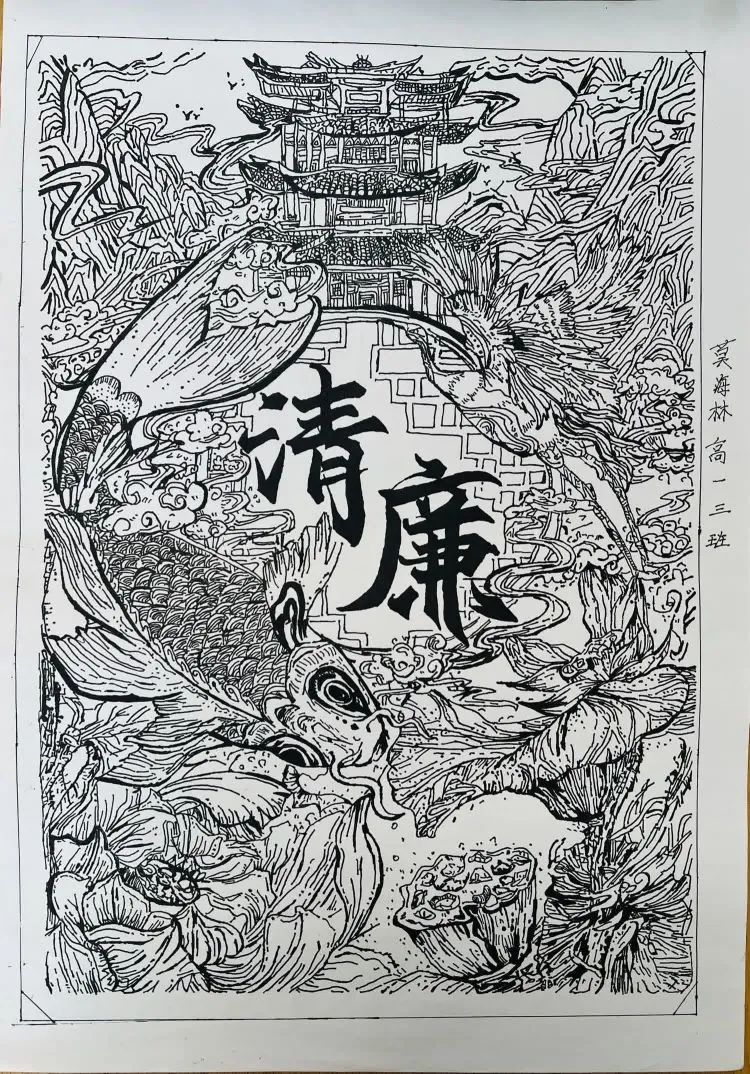 清廉
莫海林 高一三班